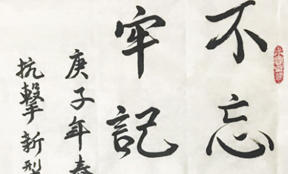 不忘
牢記
庚子年春
抗擊新型